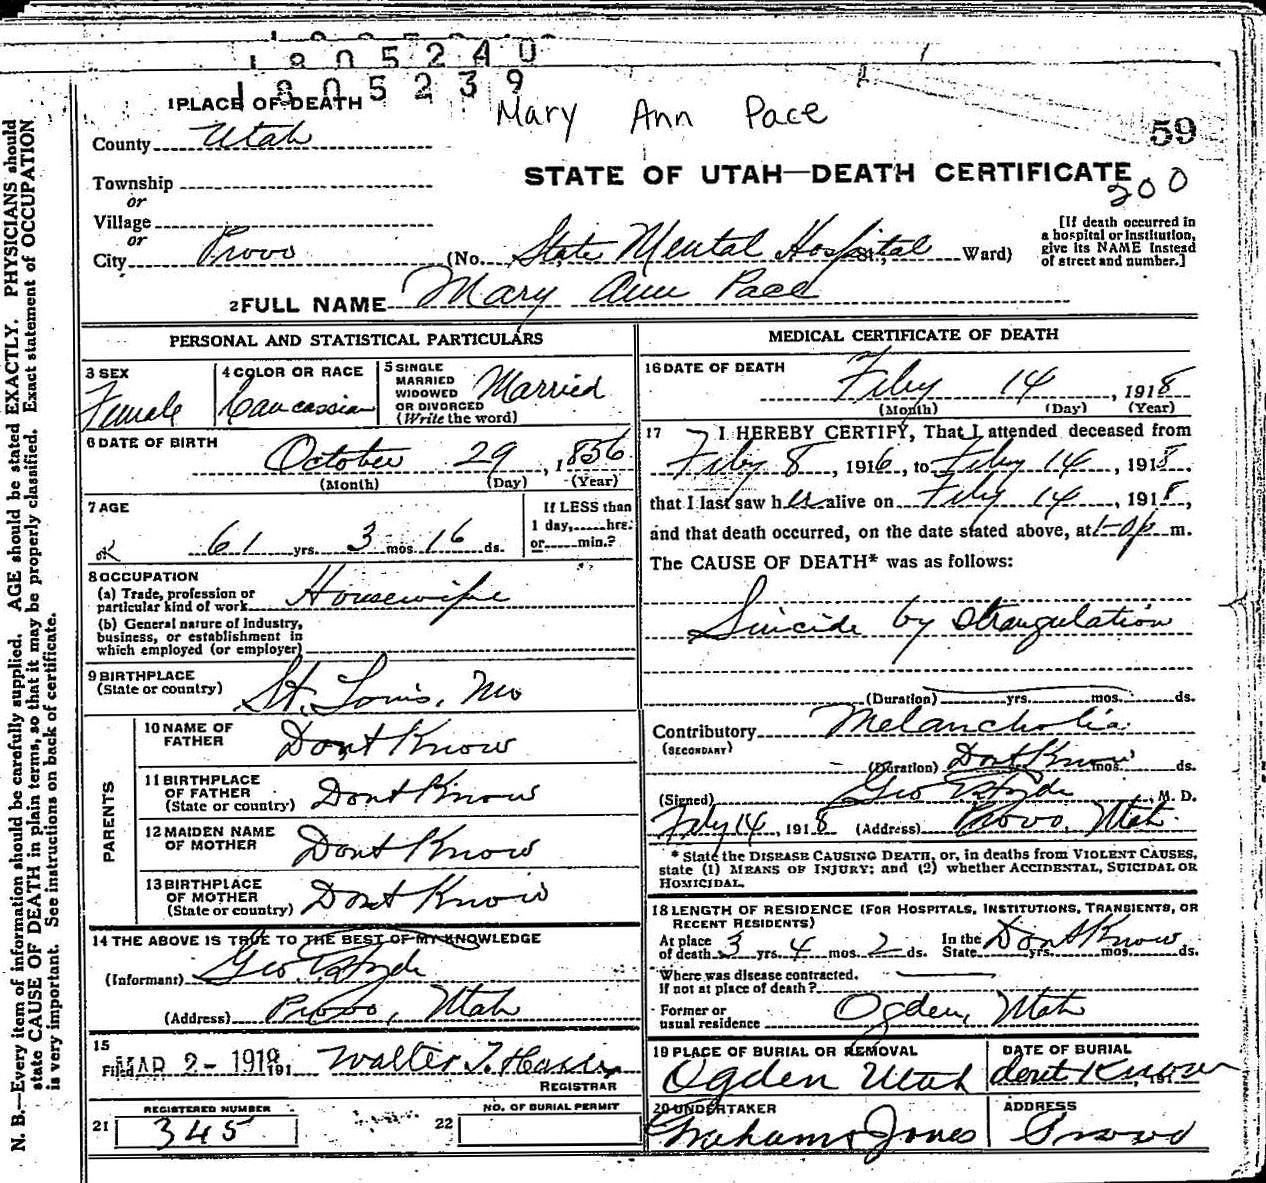 1805240
1805239
Mary Ann Pace
59
1 PLACE OF DEATH
County Utah
STATE OF UTAH—DEATH CERTIFICATE
200
Township
or
Village
or
City Provo (No. State Mental Hospital St.; Ward)
[If death occurred in
a hospital or institution,
give its NAME instead
of street and number.]
2 FULL NAME Mary Ann Pace
PERSONAL AND STATISTICAL PARTICULARS
3 SEX
Female
4 COLOR OR RACE
Caucassian
5 SINGLE
MARRIED
WIDOWED
OR DIVORCED
(Write the word)
Married
6 DATE OF BIRTH
October 29, 1856
(Month) (Day) (Year)
7 AGE
OK 61 yrs. 3 mos. 16 ds.
If LESS than
1 day,......hrs.
or......min.?
8 OCCUPATION
(a) Trade, profession or
particular kind of work Housewife
(b) General nature of industry,
business, or establishment in
which employed (or employer)
9 BIRTHPLACE
(State or country) St. Louis, Mo
PARENTS
10 NAME OF
FATHER Dont Know
11 BIRTHPLACE
OF FATHER
(State or country) Dont Know
12 MAIDEN NAME
OF MOTHER Dont Know
13 BIRTHPLACE
OF MOTHER
(State or country) Dont Know
14 THE ABOVE IS TRUE TO THE BEST OF MY KNOWLEDGE
(Informant) Geo E Hyde
(Address) Provo, Utah
15
Filed MAR 2 - 1918 191 Walter T. Hasler
REGISTRAR
REGISTERED NUMBER
21 345
NO. OF BURIAL PERMIT
22
MEDICAL CERTIFICATE OF DEATH
16 DATE OF DEATH
Feby 14, 1918
(Month) (Day) (Year)
17 I HEREBY CERTIFY, That I attended deceased from
Feby 8, 1916, to Feby 14, 1918
that I last saw her alive on Feby 14, 1918,
and that death occurred, on the date stated above, at 1-0p m.
The CAUSE OF DEATH* was as follows:
Suicide by Strangulation
(Duration) yrs. mos. ds.
Contributory Melancholia
(SECONDARY)
(Duration) Dont Know yrs. mos. ds.
(Signed) Geo E Hyde, M. D.
Feby 14, 1918 (Address) Provo, Utah.
* State the DISEASE CAUSING DEATH, or, in deaths from VIOLENT CAUSES,
state (1) MEANS OF INJURY; and (2) whether ACCIDENTAL, SUICIDAL OR
HOMICIDAL.
18 LENGTH OF RESIDENCE (FOR HOSPITALS, INSTITUTIONS, TRANSIENTS, OR
RECENT RESIDENTS)
At place
of death 3 yrs. 4 mos. 2 ds. In the
State Dont Know yrs. mos. ds.
Where was disease contracted,
If not at place of death?
Former or
usual residence Ogden, Utah
19 PLACE OF BURIAL OR REMOVAL
Ogden Utah
DATE OF BURIAL
dont Know, 191
20 UNDERTAKER
Graham & Jones
ADDRESS
Provo
N. B.—Every item of information should be carefully supplied. AGE should be stated EXACTLY. PHYSICIANS should
state CAUSE OF DEATH in plain terms, so that it may be properly classified. Exact statement of OCCUPATION
is very important. See instructions on back of certificate.